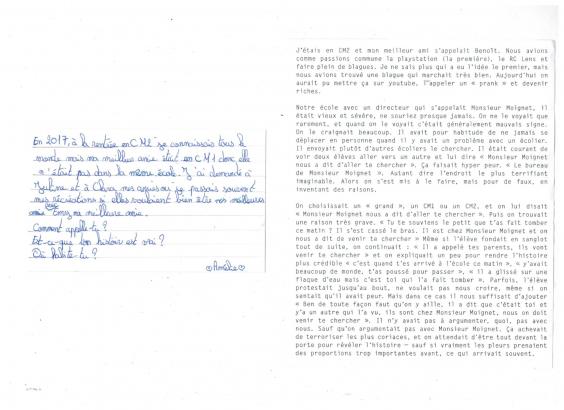 En 2017, à la rentrée en CM2 je connaissais tous le
monde mais ma meilleure amie était en CM1 donc elle
n'était pas dans la même école. J'ai demandé à
et à Clara, nos je passais souvent
mes récréations si elles voulaient bien être nos meilleures
amie ma meilleure amie.
Comment appelle-tu ?
Est-ce-que ton histoire est vrai ?
Où habite-tu ?
Amélie
J'étais en CM2 et mon meilleur ami s'appelait Benoît. Nous avions
comme passions commune la playstation (la première), le RC Lens et
faire plein de blagues. Je ne sais plus qui a eu l'idée le premier, mais
nous avions trouvé une blague qui marchait très bien. Aujourd'hui on
aurait pu mettre ça sur youtube, l'appeler un « prank » et devenir
riches.
Notre école avec un directeur qui s'appelait Monsieur Moignet, il
était vieux et sévère, ne souriez presque jamais. On ne le voyait que
rarement, et quand on le voyait c'était généralement mauvais signe.
On le craignait beaucoup. Il avait pour habitude de ne jamais se
déplacer en personne quand il y avait un problème avec un écolier.
Il envoyait plutôt d'autres écoliers le chercher. Il était courant de
voir deux élèves aller vers un autre et lui dire « Monsieur Moignet
nous a dit d'aller te chercher ». Ça faisait hyper peur. « Le bureau
de Monsieur Moignet ». Autant dire l'endroit le plus terrifiant
imaginable. Alors on s'est mis à le faire, mais pour de faux, en
inventant des raisons.
On choisissait un « grand », un CM1 ou un CM2, et on lui disait
« Monsieur Moignet nous a dit d'aller te chercher ». Puis on trouvait
une raison très grave. « Tu te souviens le petit que t'as fait tomber
ce matin ? Il s'est cassé le bras. Il est chez Monsieur Moignet et on
nous a dit de venir te chercher » Même si l'élève fondait en sanglot
tout de suite, on continuait : « Il a appelé tes parents, ils vont
venir te chercher » et on expliquait un peu pour rendre l'histoire
plus crédible « c'est quand t'es arrivé à l'école ce matin », « y'avait
beaucoup de monde, t'as poussé pour passer », « il a glissé sur une
flaque d'eau mais c'est toi qui l'a fait tomber ». Parfois, l'élève
protestait jusqu'au bout, ne voulait pas nous croire, même si on
sentait qu'il avait peur. Mais dans ce cas il nous suffisait d'ajouter
« Ben de toute façon faut qu'on y aille, il a dit que c'était toi et
y'a un autre qui l'a vu, ils sont chez Monsieur Moignet, nous on doit
venir te chercher ». Il n'y avait pas à argumenter, quoi, pas avec
nous. Sauf qu'on argumentait pas avec Monsieur Moignet. Ça achevait
de terroriser les plus coriaces, et on attendait d'être tout devant la
porte pour révéler l'histoire – sauf si vraiment les pleurs prenaient
des proportions trop importantes avant, ce qui arrivait souvent.